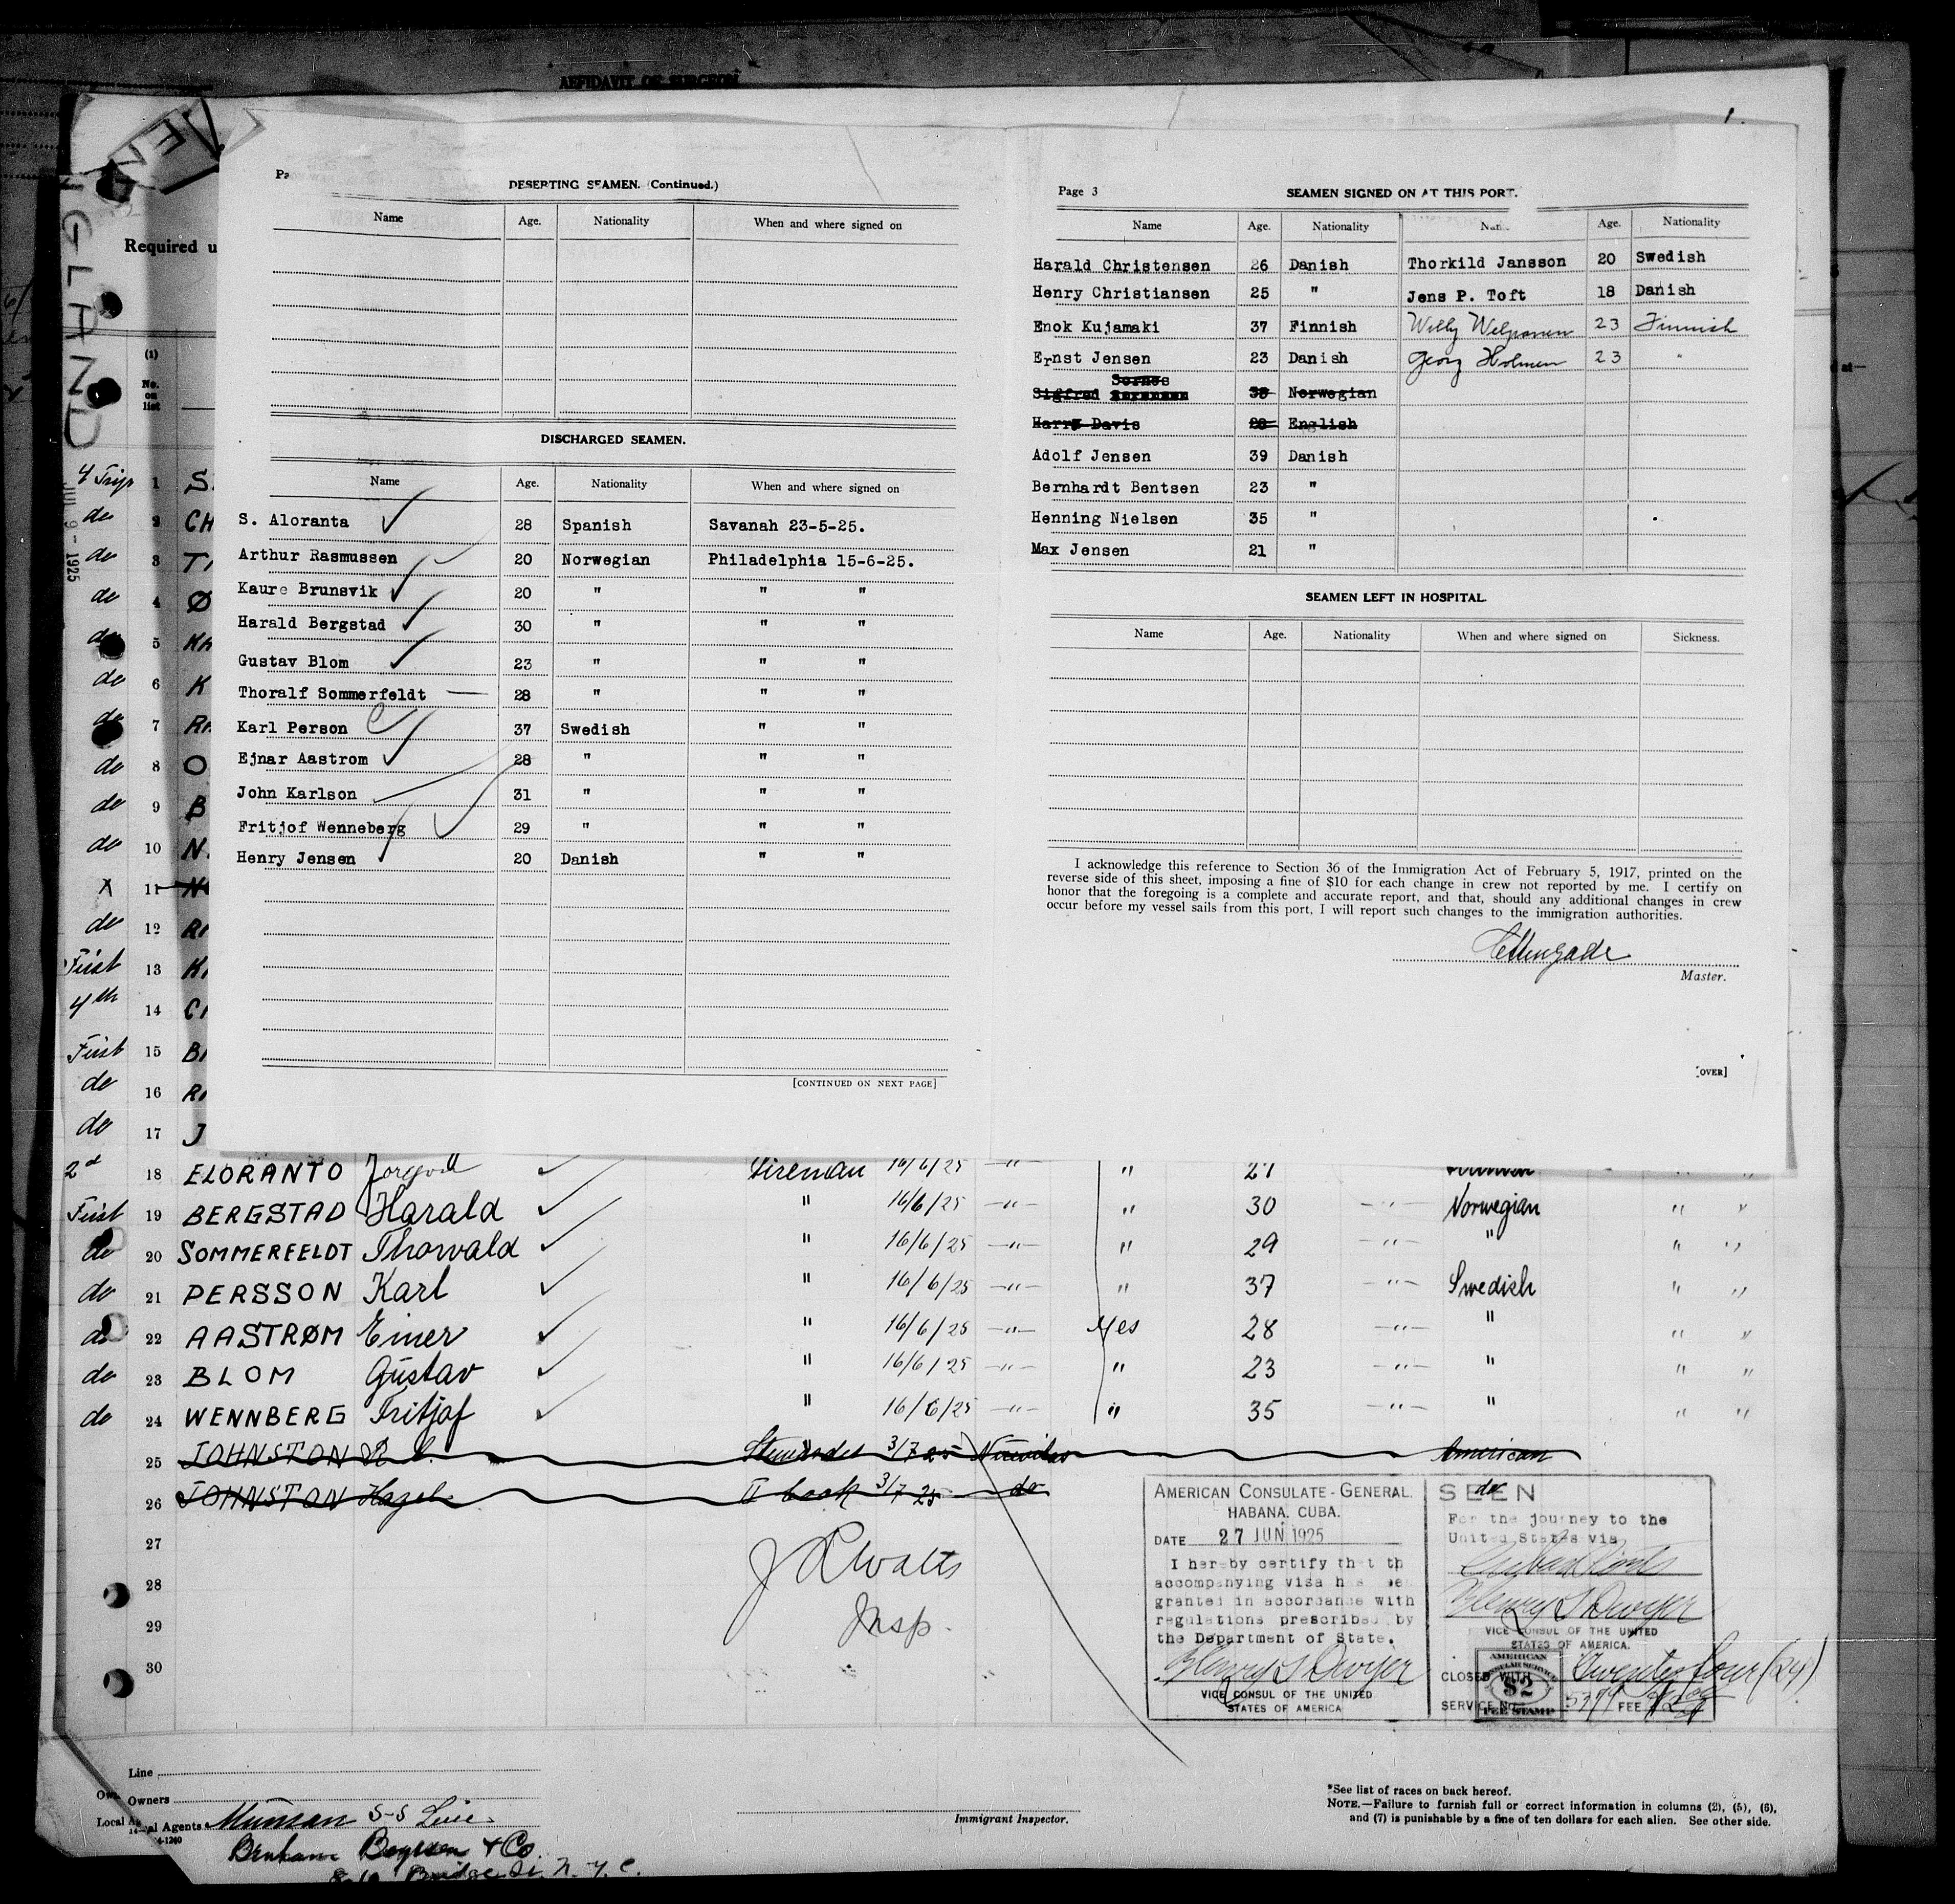 AFFIDAVIT OF SURGEON
ENGLAND
Required u
(1)
No. on list
JUL 9 - 1925
DESERTING SEAMEN. (Continued.)
Name Age. Nationality When and where signed on
DISCHARGED SEAMEN.
Name Age. Nationality When and where signed on
S. Aloranta 28 Spanish Savanah 23-5-25.
Arthur Rasmussen 20 Norwegian Philadelphia 15-6-25.
Kaure Brunsvik 20 " " "
Harald Bergstad 30 " " "
Gustav Blom 23 " " "
Thoralf Sommerfeldt 28 " " "
Karl Person 37 Swedish " "
Ejnar Aastrom 28 " " "
John Karlson 31 " " "
Fritjof Wenneberg 29 " " "
Henry Jensen 20 Danish " "
[CONTINUED ON NEXT PAGE]
Page 3 SEAMEN SIGNED ON AT THIS PORT.
Name Age. Nationality Nam Age. Nationality
Harald Christensen 26 Danish Thorkild Jansson 20 Swedish
Henry Christiansen 25 " Jens P. Toft 18 Danish
Enok Kujamaki 37 Finnish Willy Welponen 23 Finnish
Ernst Jensen 23 Danish Georg Holmen 23 "
Sornes
Sigfred 35 Norwegian
Harry Davis 28 English
Adolf Jensen 39 Danish
Bernhardt Bentsen 23 "
Henning Nielsen 35 "
Max Jensen 21 "
SEAMEN LEFT IN HOSPITAL.
Name Age. Nationality When and where signed on Sickness.
I acknowledge this reference to Section 36 of the Immigration Act of February 5, 1917, printed on the
reverse side of this sheet, imposing a fine of $10 for each change in crew not reported by me. I certify on
honor that the foregoing is a complete and accurate report, and that, should any additional changes in crew
occur before my vessel sails from this port, I will report such changes to the immigration authorities.
Master.
[OVER]
4 Trip 1 S.
do 2 CH
do 3 T
do 4 Ø
do 5 KA
do 6 K
do 7 RA
do 8 O
do 9 B
do 10 N.
X 11
do 12 R
First 13 K
4th 14 C
First 15 B
do 16 R
do 17 J
2d 18 ELORANTO Fireman 16/6/25 —"— " 27 "
First 19 BERGSTAD Harald " 16/6/25 —"— " 30 —"— Norwegian " "
do 20 SOMMERFELDT Thorvald " 16/6/25 —"— " 29 —"— " " "
do 21 PERSSON Karl " 16/6/25 —"— " 37 —"— Swedish " "
do 22 AASTRØM Einer " 16/6/25 —"— Yes 28 —"— " " "
do 23 BLOM Gustav " 16/6/25 —"— " 23 —"— " " "
do 24 WENNBERG Fritjof " 16/6/25 —"— " 35 —"— " " "
25 JOHNSTON R. C. Stewardes 3/7 25 Nuevitas American
26 JOHNSTON Hazel II Cook 3/7 25 do do
27
28
29
30
J L Watts
Insp.
AMERICAN CONSULATE-GENERAL.
HABANA, CUBA.
DATE 27 JUN 1925
I hereby certify that th
accompanying visa has be
granted in accordance with
regulations prescribed by
the Department of State.
Henry S Dwyer
VICE CONSUL OF THE UNITED
STATES OF AMERICA
SEEN
For the journey to the
United States via
Cuban Ports
Henry S Dwyer
VICE CONSUL OF THE UNITED
STATES OF AMERICA.
CLOSED WITH Twenty four (24)
SERVICE No. FEE
AMERICAN
CONSULAR SERVICE
$2
FEE STAMP
Line
Owners
Local Agents Munson S-S Line
Benham Boyesen & Co.
8-10 Bridge St. N. Y. C.
14-1240
Immigrant Inspector.
*See list of races on back hereof.
NOTE.—Failure to furnish full or correct information in columns (2), (5), (6),
and (7) is punishable by a fine of ten dollars for each alien. See other side.